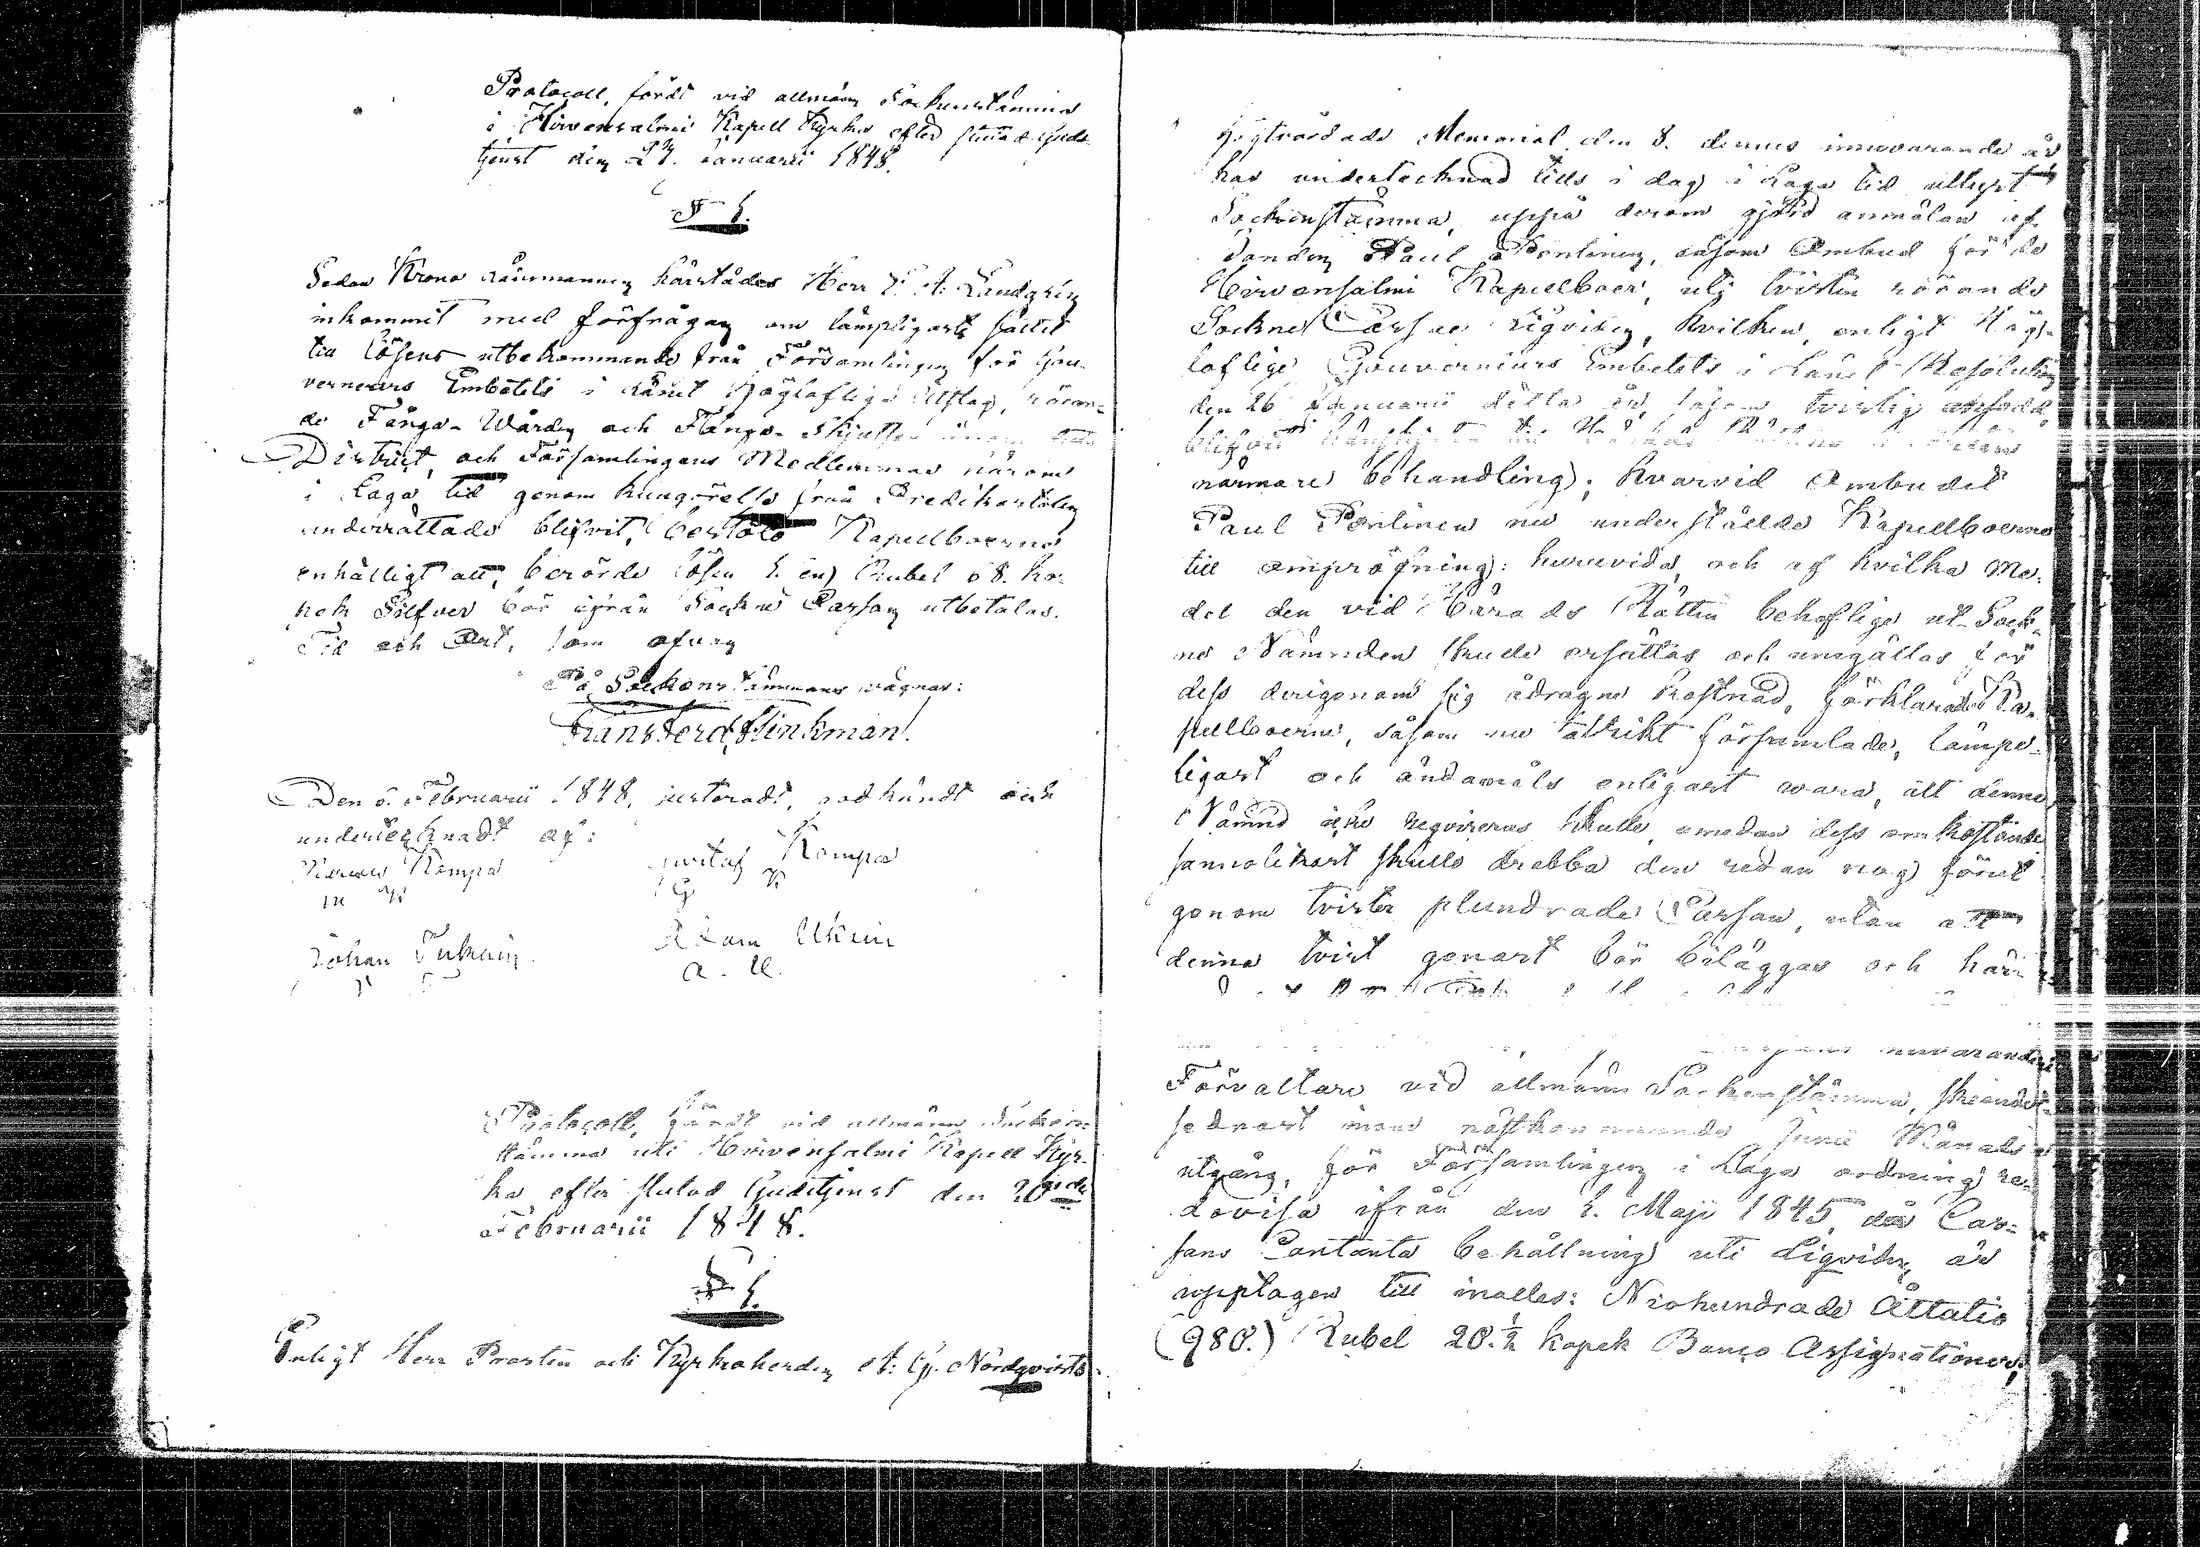 Protocoll, fördt vid allmän Sockenstämma
i Hirvensalmi Kapell Kyrka efter slutad Guds-
tjenst den 27. Januarii 1848.
§ 1.
Sedan Krono Länsmannen härstädes Herr E. A. Landgrén
inkommit med förfrågan om lämpligaste sättet
till lösens utbekommande från Församlingen för Gou-
verneurs Embetets i Länet Höglofliga Utslag, röran-
de Fånga-Vården och Fånga-skjutsen
District, och Församlingens Medlemmar härom
i Laga tid genom kungörelse från Predikostolen
underrättade blifvit, bestöto Kapellboerne
enhälligt att, berörde lösen 1. (en) Rubel 08. ko-
pek Silfver bör ifrån Sockne Cassan utbetalas.
Tid och Ort, som ofvan
På Sockenstämmans vägnar:
Frans Ferd. Flinkman.
Den 6. Februarii 1848, justeradt, godkändt och
undertecknadt af:
Kompa
Gustaf Kompa
G K
Johan
Adam Ukain
A. U.
Protocoll, fördt vid allmän Socken-
stämma uti Hirvensalmi Kapell Kyr-
ka efter slutad Gudstjenst den 20nde
Februarii 1848.
§ 1.
Enligt Herr Prosten och Kyrkoherden A: G. Nordqvists
Högtvördade Memorial den 8. dennes innevarande år
har undertecknad tills i dag i Laga tid utlyst
Sockenstämma, uppå derom gjord anmälan af
Bonden Paul Pontinen, såsom Ombud för de
Hirvensalmi Kapellboer, uti tvisten rörande
Sockne Cassae Liqviden, hvilken, enligt Hög-
loflige Gouverneurs Embetets i Länet Resolution
den 26 Januarii detta år, såsom tvistig ansedd
blifvit
närmare behandling; hvarvid Ombudet
Paul Pontinen nu underställde Kapellboerne
till ompröfning: huruvida, och af hvilka Me-
del den vid Härads Rätten behöfliga ut-Sock-
ne Nämnden skulle ersättas och umgällas för
dess derigenom sig ådragne kostnad, förklarade Ka-
pellboerne, såsom nu talrikt församlade, lämpe-
ligast och ändamåls enligast vara, att denna
Nämnd icke reqvireras skulle, emedan dess omkostnad
sannolikast skulle drabba den redan nog förut
genom tvister plundrade Cassan, utan att
denna tvist genast bör biläggas och här-
innevarande
Förvaltare vid allmän Sockenstämma, skeende
sednast inom nästkommande Junii Månads
utgång, för Församlingen i Laga ordning re-
dovisa ifrån den 1. Maji 1845, då Cas-
sans Contanta behållning uti Liqviden är
upptagen till inalles: Niohundrade Åttatio
(980.) Rubel 20.½ kopek Banco Assignationer,